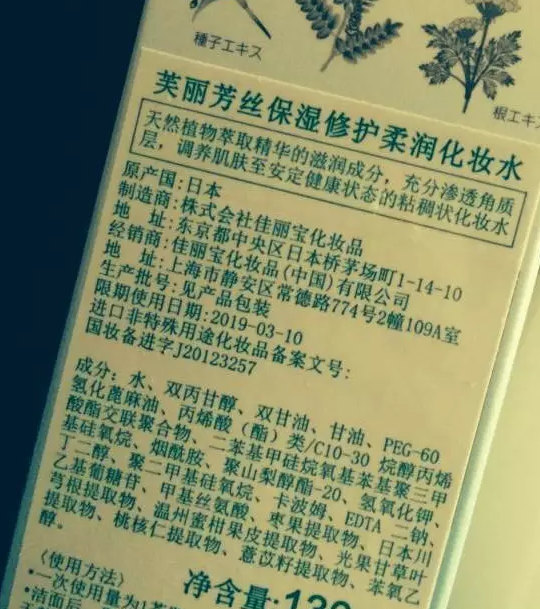 種子エキス
根エキス
芙丽芳丝保湿修护柔润化妆水
天然植物萃取精华的滋润成分，充分渗透角质
层，调养肌肤至安定健康状态的粘稠状化妆水
原产国:日本
制造商:株式会社佳丽宝化妆品
地　址:东京都中央区日本桥茅场町1-14-10
经销商:佳丽宝化妆品(中国)有限公司
地　址:上海市静安区常德路774号2幢109A室
生产批号:见产品包装
限期使用日期:2019-03-10
进口非特殊用途化妆品备案文号:
国妆备进字J20123257
成分: 水、双丙甘醇、双甘油、甘油、PEG-60
氢化蓖麻油、丙烯酸（酯）类/C10-30 烷醇丙烯
酸酯交联聚合物、二苯基甲硅烷氧基苯基聚三甲
基硅氧烷、烟酰胺、聚山梨醇酯-20、氢氧化钾、
丁二醇、聚二甲基硅氧烷、卡波姆、EDTA 二钠、
乙基葡糖苷、甲基丝氨酸、枣果提取物、日本川
芎根提取物、温州蜜柑果皮提取物、光果甘草叶
提取物、桃核仁提取物、薏苡籽提取物、苯氧乙
醇。
〈使用方法〉
净含量:
•一次使用量为1
•洁面后